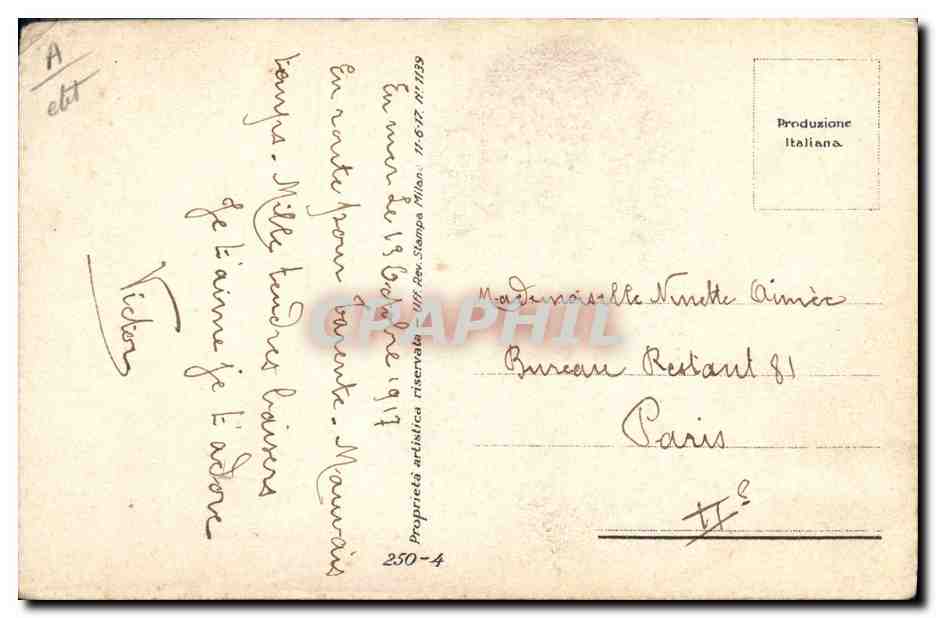 A
ebt
En mer le 19 Octobre 1917
En route pour Tarente. Mauvais
temps. Mille tendres baisers
Je t'aime je t'adore
Victor
Proprietà artistica riservata - Uff. Rev. Stampa Milano 11-6-17. N° 1139
250-4
Produzione
Italiana
CRAPHIL
Mademoiselle Ninette Aimée
Bureau Restant 81
Paris
II e